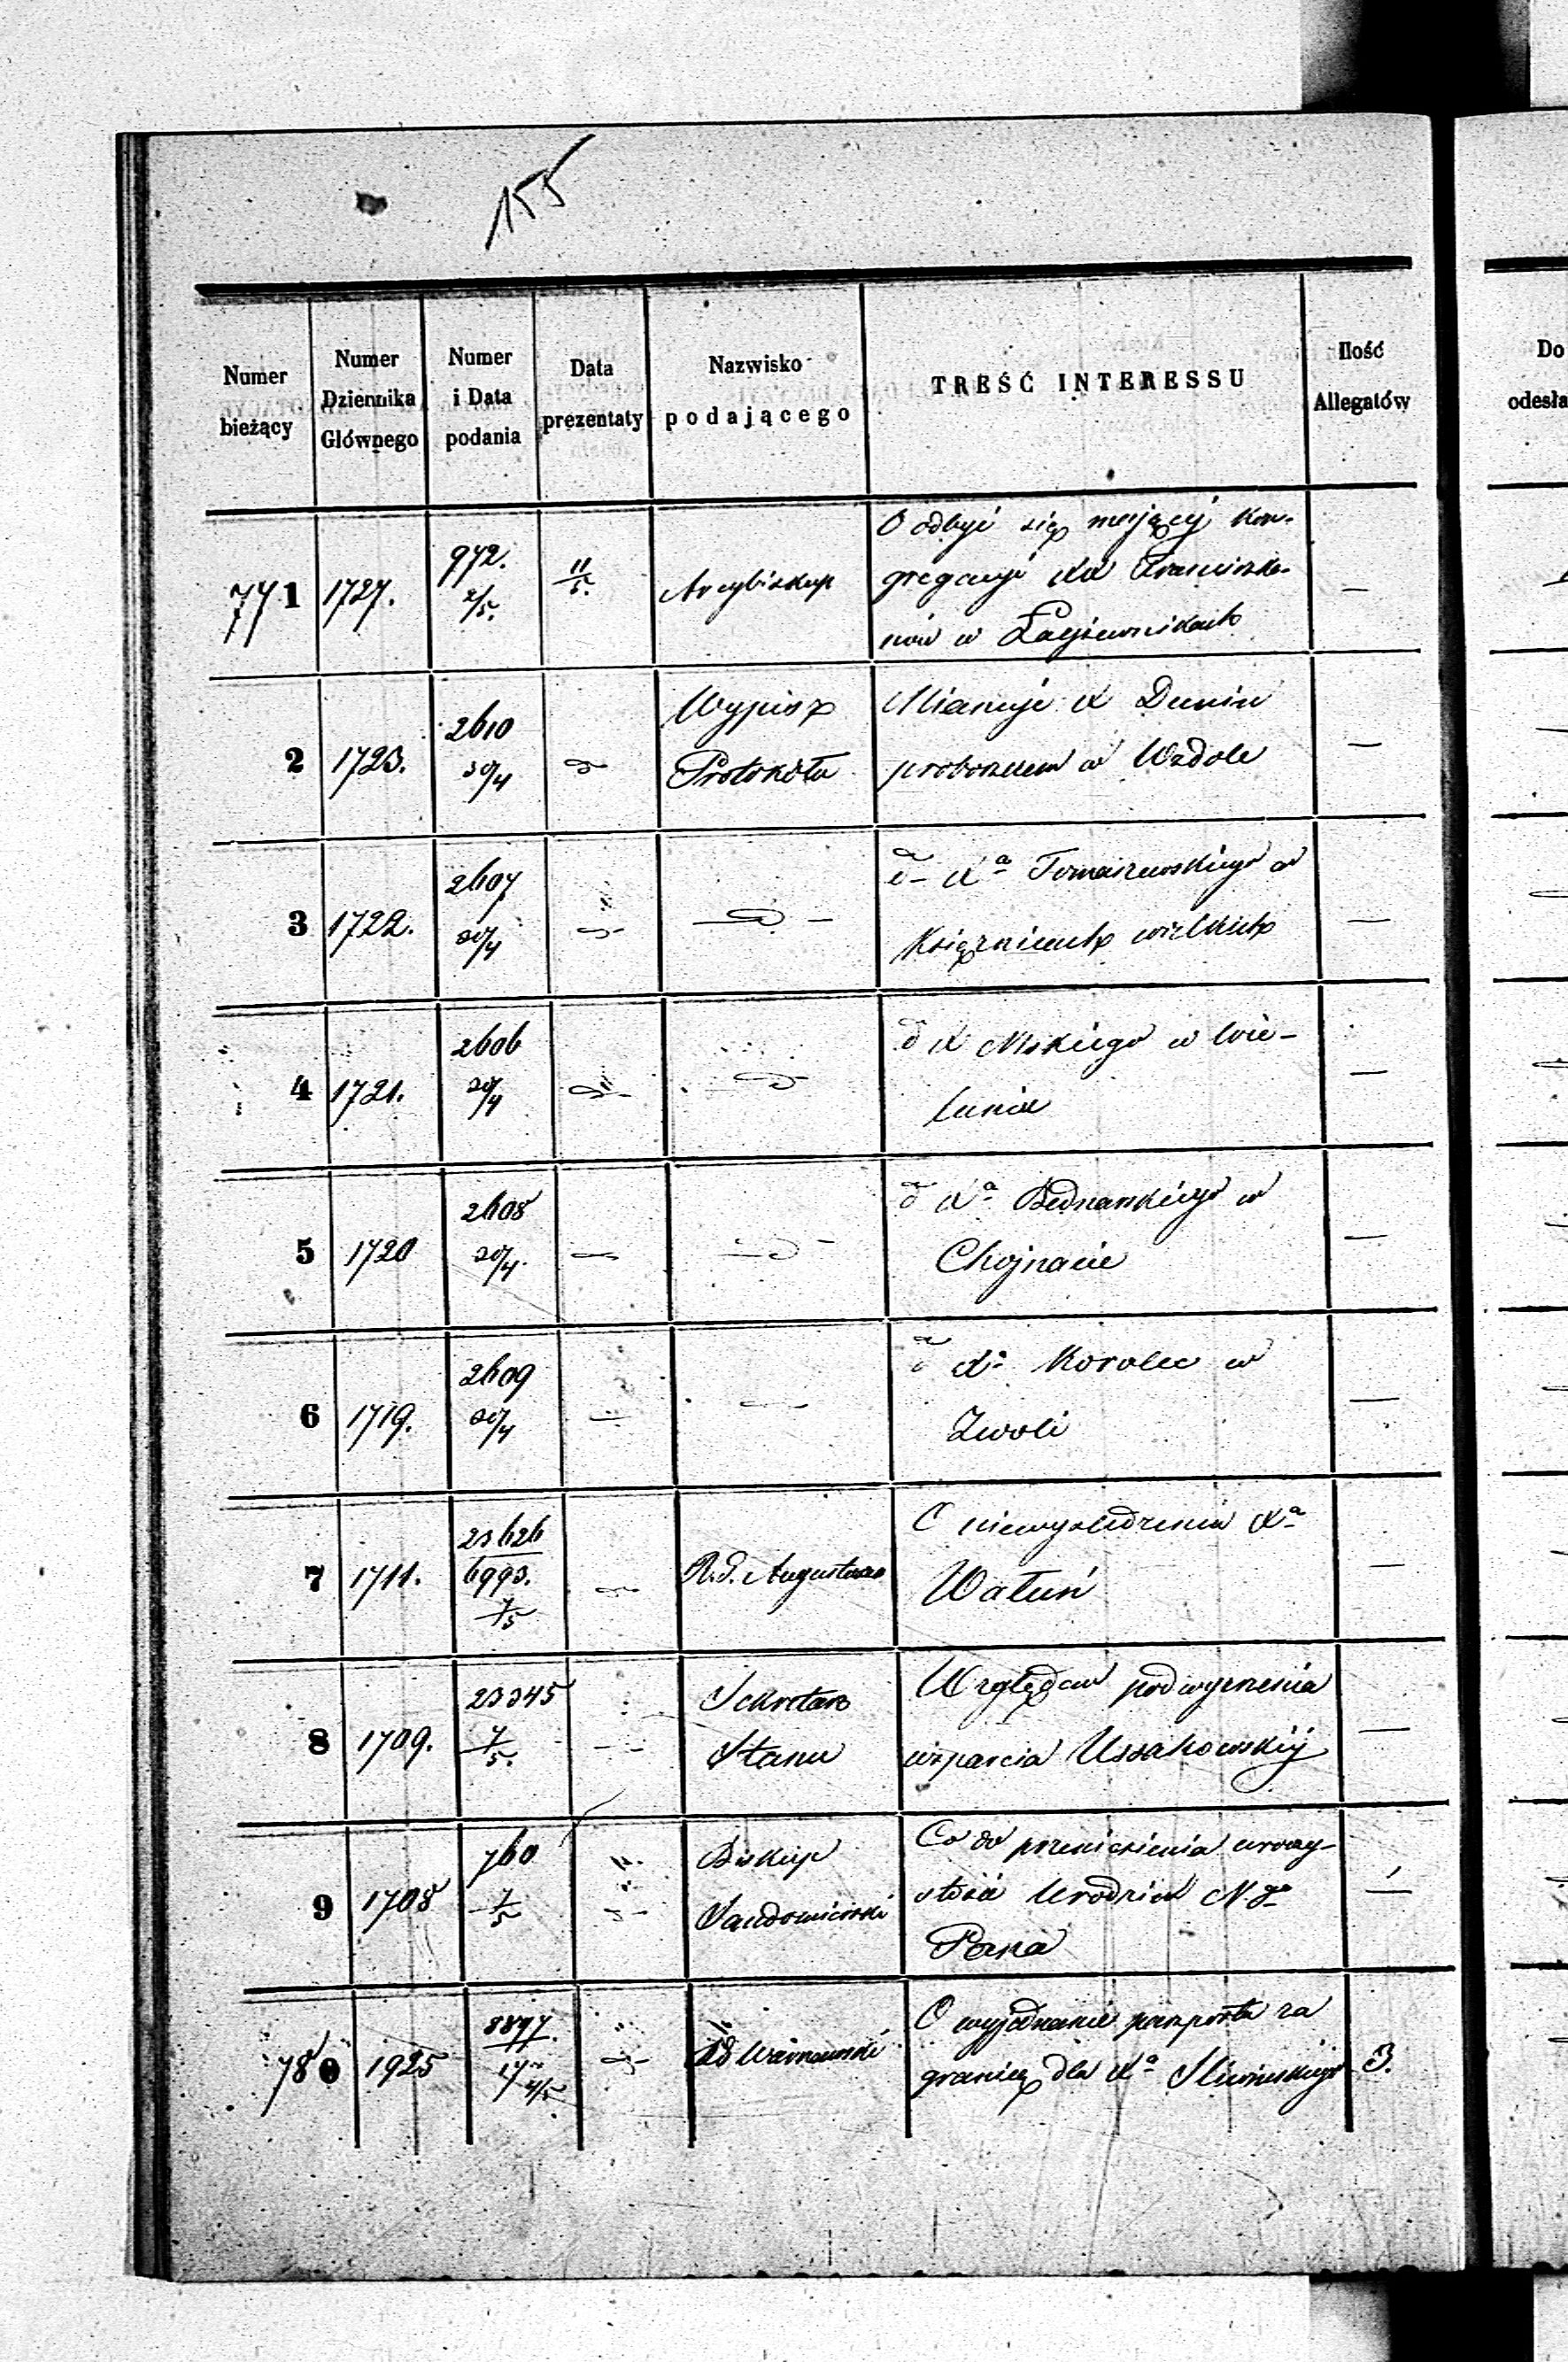 155
Numer bieżący
Numer Dziennika Głównego
Numer i Data podania
Data prezentaty
Nazwisko podającego
TREŚĆ INTERESSU
Ilość Allegatów
Do
odesła
771 1727. 972. 2/5. 11/5. Arcybiskup O odbyć się mającej kon-
gregacyi XX Franciszka-
nów w Łagiewnikach —
2 1723. 2610 30/4 Wypis z Mianuje X Dunin
Protokołu proboszczem w Wzdole —
3 1722. 2607 20/4 — d- Xa Tomaszewskiego w
Księżnicach wielkich —
4 1721. 2606 20/4 d X w Wie-
luniu —
5 1720 2608 20/4. — d Xa Bednarskiego w
Chojnacie —
6 1719. 2609 20/4 — — d Xa Korolec w
Zwoli —
7 1711. 23626 6993. 7/5 — R.G. Augustows O niewyśledzeniu Xa
Watuń —
8 1709. 23345 7/5. — Sekretarz Względem podwyższenia
Stanu wsparcia Ussakowskiej —
9 1708 760 7/5 Biskup Co do przeniesienia uroczy-
Sandomierski stości Urodzin N. go
Pana —
780 1925 8897. 17 4/5 Warszawski O wyjednanie paszportu za
granicę dla Xa Sliwińskiego 3.